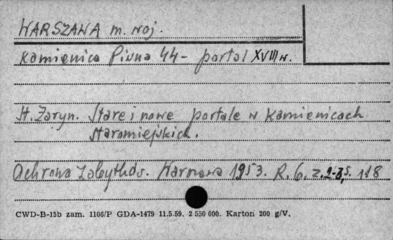 WARSZAWA m. woj.
Kamienica Piwna 44 - portal XVIII w.
H. Zaryn. Stare i nowe portale w kamienicach
staromiejskich.
Ochrona Zabytków. Warszawa 1953. R. 6, z. 2-3, s. 118
CWD-B-15b zam. 1106/P GDA-1479 11.5.59. 2 530 000. Karton 200 g/V.